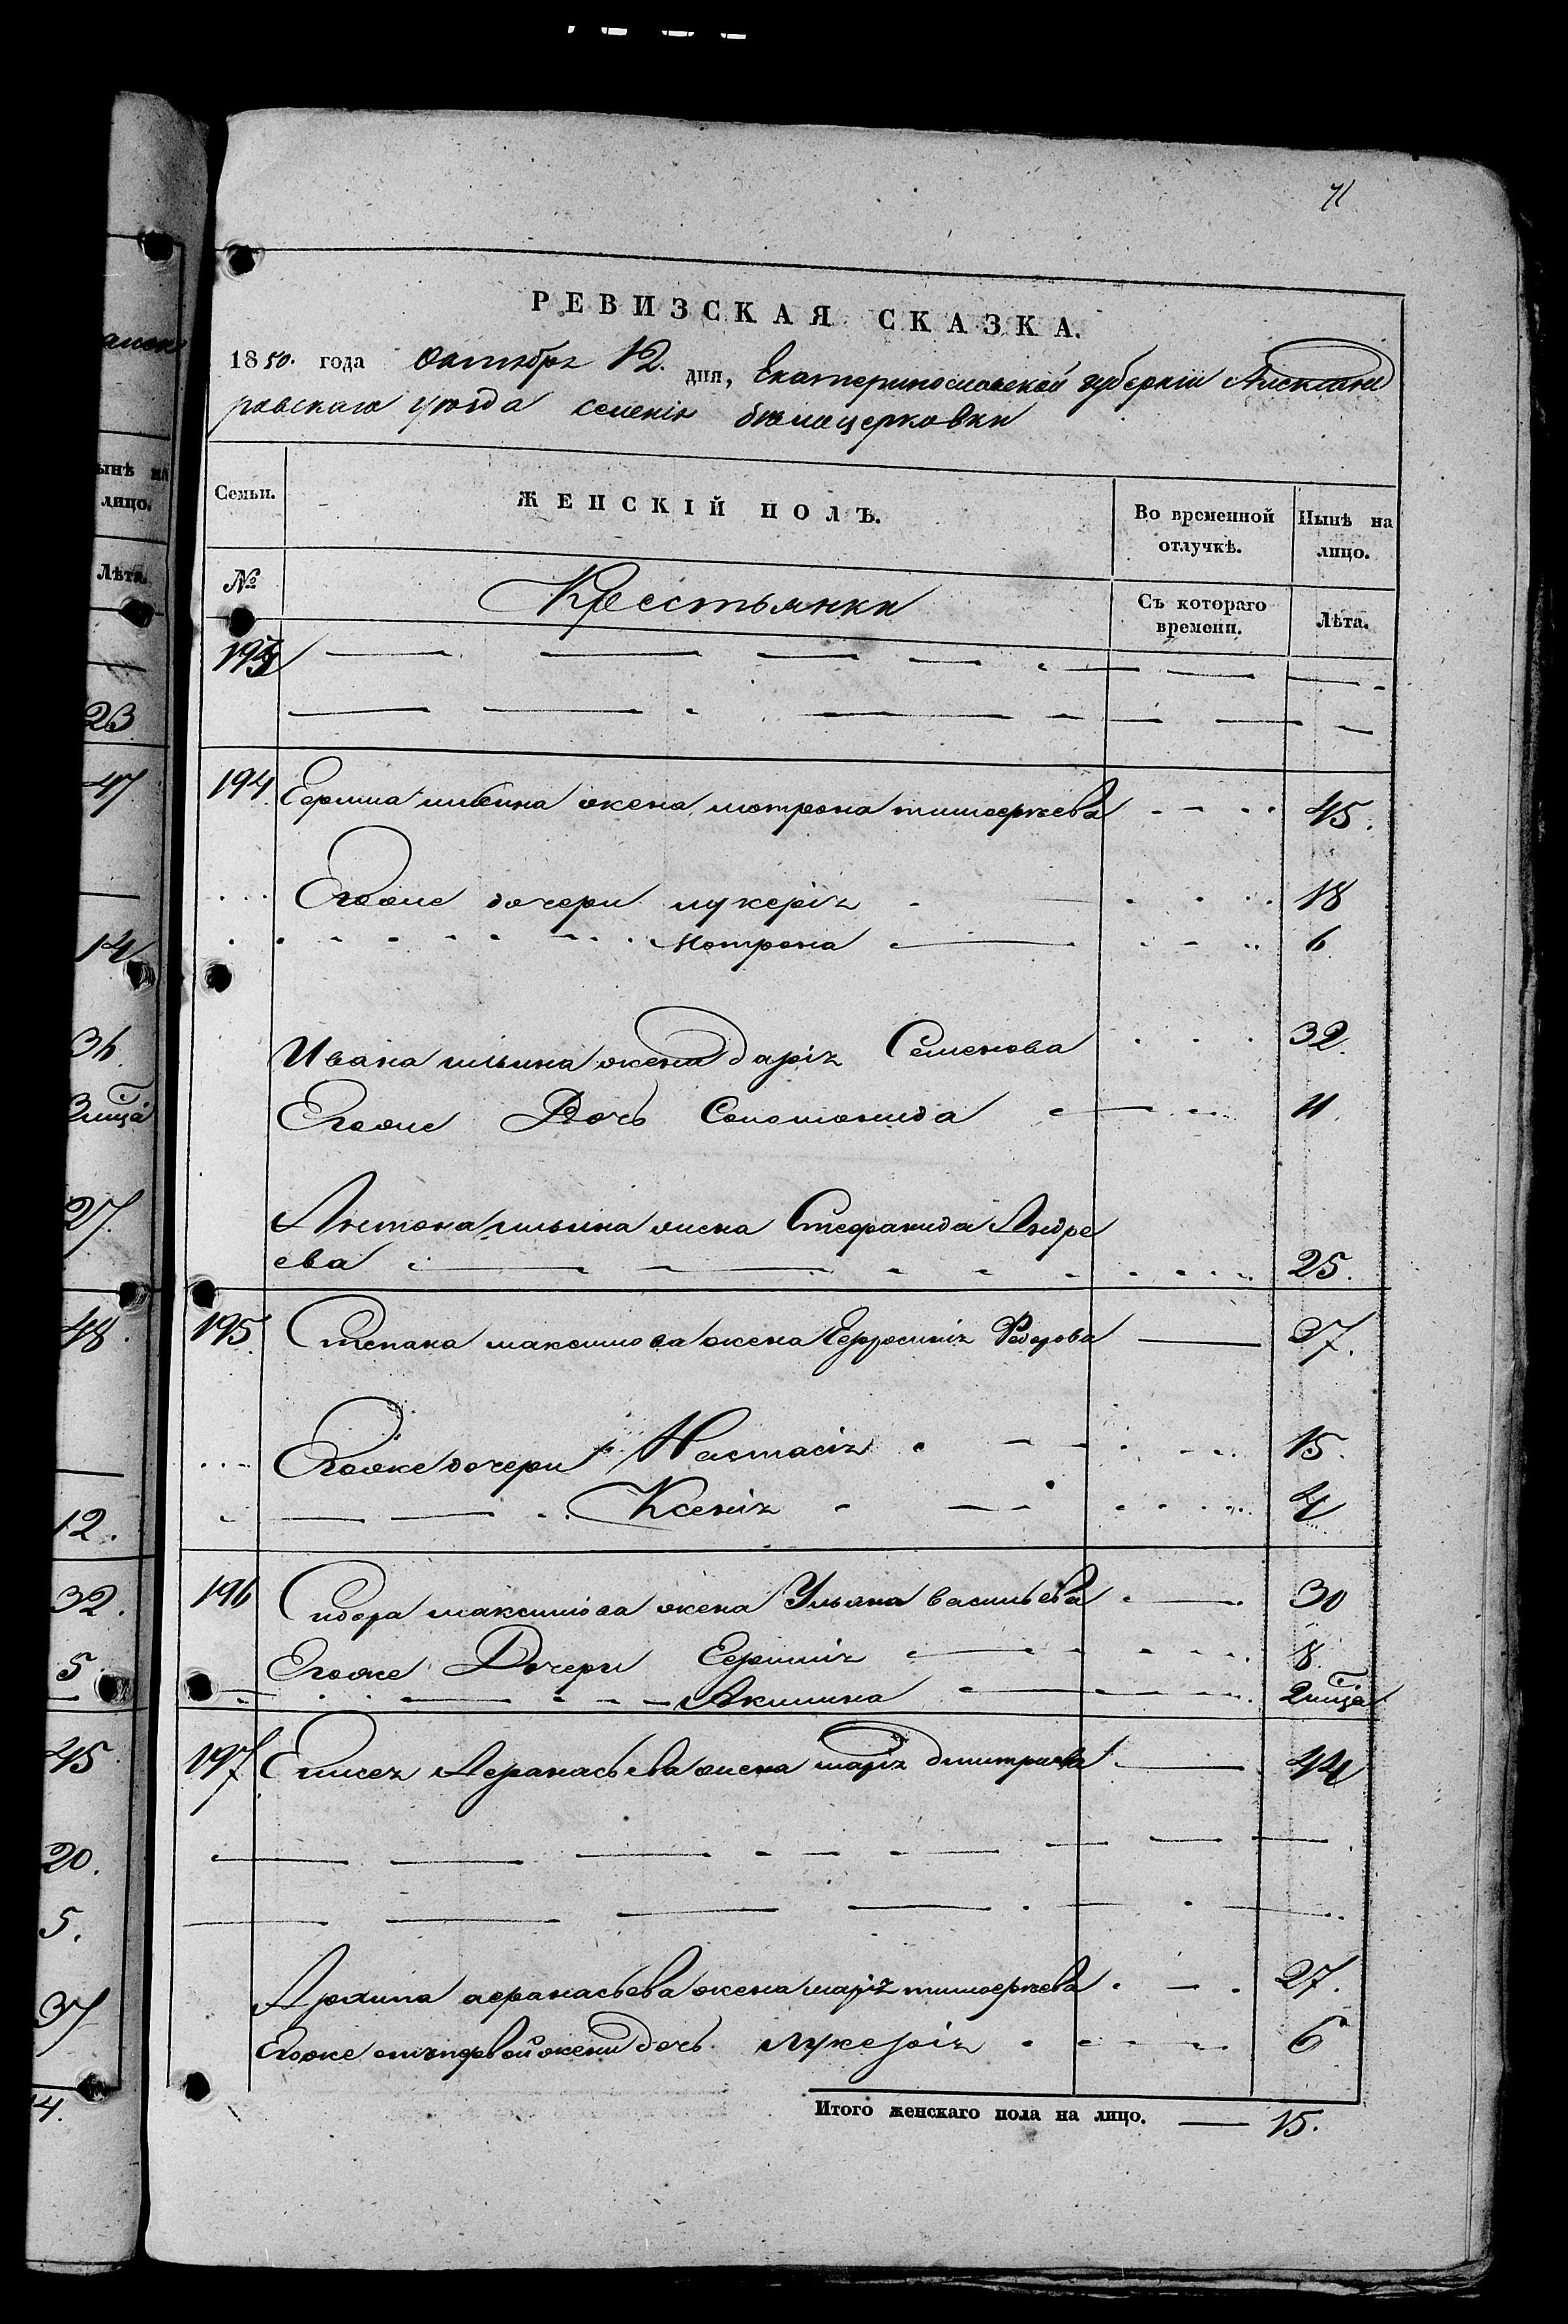 71
РЕВИЗСКАЯ СКАЗКА.
1850. года Октября 12. дня, Екатеринославской губерніи Александ
ровскаго уѣзда селенія бѣлоцерковки
Семьи.
ЖЕНСКІЙ ПОЛЪ.
Во временной отлучкѣ.
Нынѣ на лицо.
№
Крестьянки
Съ котораго времени.
Лѣта.
193
194 Ефима ильина жена мотрона тимофѣева 45.
Егоже дочери лукерія 18
Мотрона 6
Ивана ильина жена дарія Семенова 32.
Егоже Дочь Соломонида 11.
Антона ильина жена Стефанида Андре
ева 25.
195 Степана максимова жена Ефросинія Федорова 37.
Егоже дочери Настасія 15.
Ксенія 4
196 Сидора максимова жена Ульяна васильева 30
Егоже Дочери Ефимія 8
Акилина 2 мца
197 Елисея Афанасьева жена марія дмитріева 44
Архипа афанасьева жена марія тимофѣева 27.
Егоже отъ первой жены дочь Лукерія 6
Итого женскаго пола на лицо. 15.
ынѣ на
лицо.
Лѣта.
23
47
14
36
3 мца
27.
48.
12.
32.
5.
45
20.
5.
37
4.